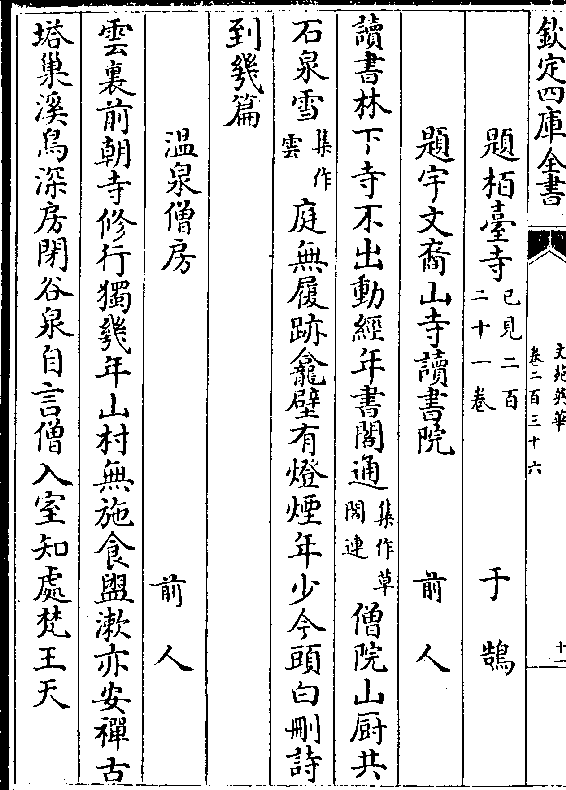 欽定四庫全書
文苑英華
卷二百三十六
十一
題栢臺寺已見二百二十一卷 于鵠
題宇文裔山寺讀書院 前人
讀書林下寺不出動經年書閣通集作草閣連僧院山厨共
石泉雪集作雲庭無履跡龕壁有燈煙年少今頭白刪詩
到幾篇
溫泉僧房 前人
雲裏前朝寺修行獨幾年山村無施食盥漱亦安禪古
塔巢溪鳥深房閉谷泉自言僧入室知處梵王天